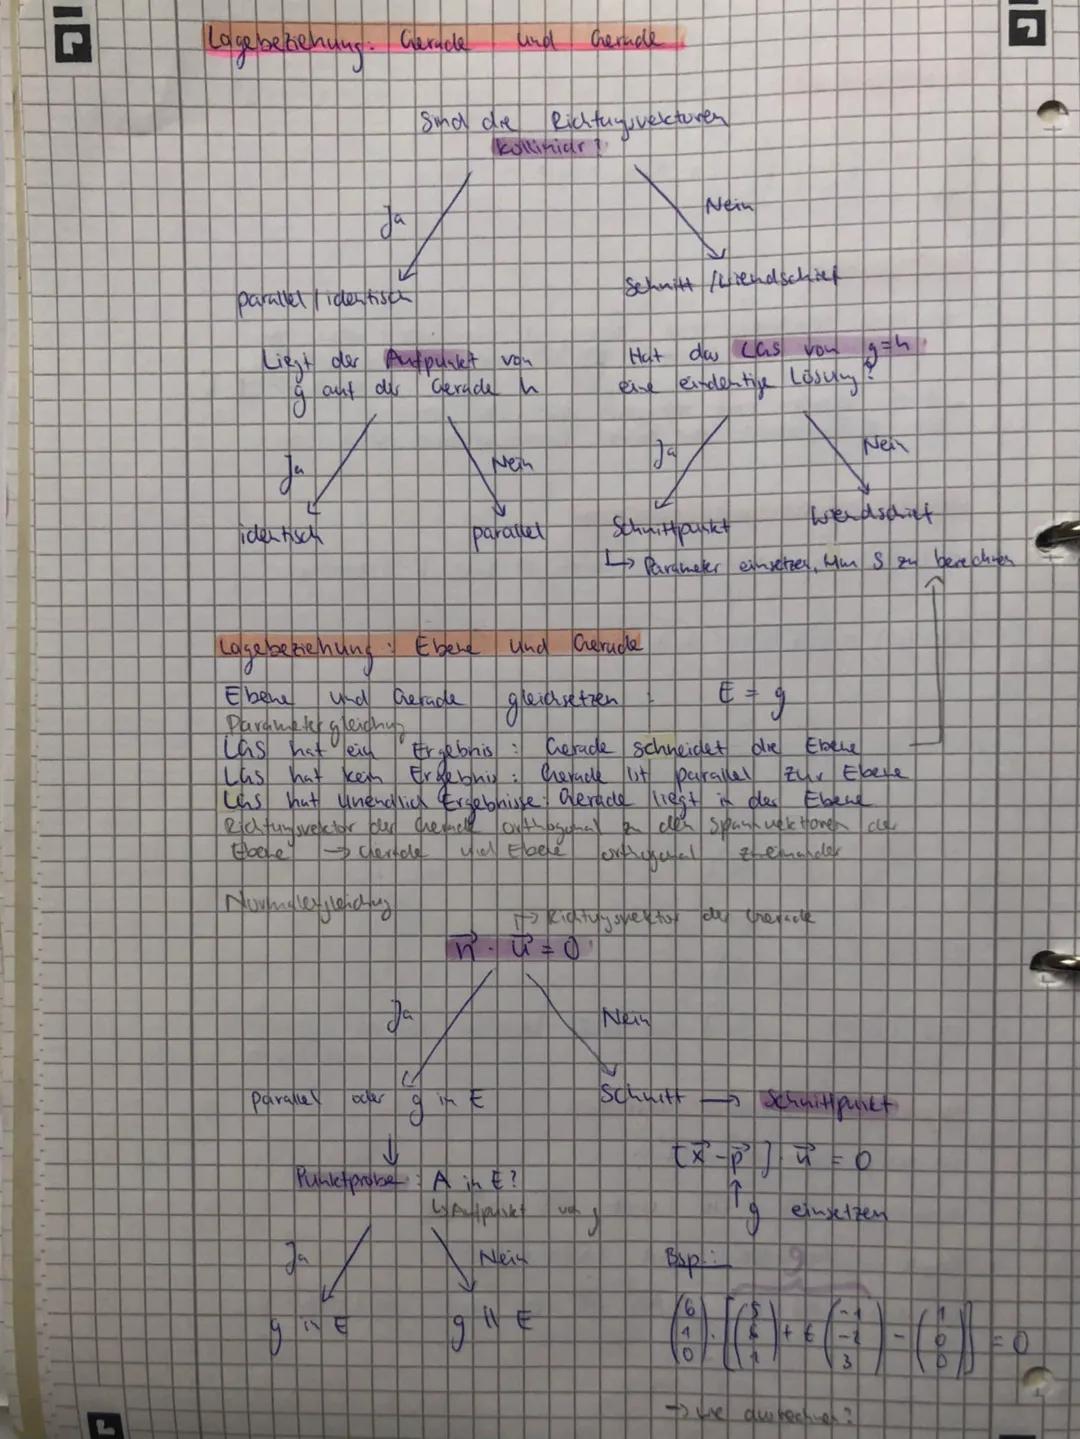 Lagebeziehung: Gerade und Gerade
Sind die Richtungsvektoren
kollinear?
Ja
Nein
parallel / identisch
Schnitt / Windschief
Liegt der Aufpunkt von
g auf der Gerade h
Hat das LGS von g=h
eine eindeutige Lösung?
Ja
Nein
Ja
Nein
identisch
parallel
Schnittpunkt
Windschief
↳ Parameter einsetzen, um S zu berechnen
Lagebeziehung: Ebene und Gerade
Ebene und Gerade gleichsetzen: E = g
Parametergleichung
LGS hat ein Ergebnis: Gerade schneidet die Ebene
LGS hat kein Ergebnis: Gerade ist parallel zur Ebene
LGS hat unendlich Ergebnisse: Gerade liegt in der Ebene
Richtungsvektor der Gerade orthogonal zu den Spannvektoren der
Ebene → Gerade und Ebene orthogonal zueinander
Normalengleichung
↱ Richtungsvektor der Gerade
n⃗ · u⃗ = 0
Ja
Nein
parallel oder g in E
Schnitt → Schnittpunkt
Punktprobe: A in E?
↳ Aufpunkt von g
[x⃗ - p⃗] · n⃗ = 0
↑
g einsetzen
Ja
Nein
g in E
g || E
Bsp.: g
(6 1 0) · [(5 1) + t (-1 -2 3) - (1 0 0)] = 0
→ wie ausrechnen?